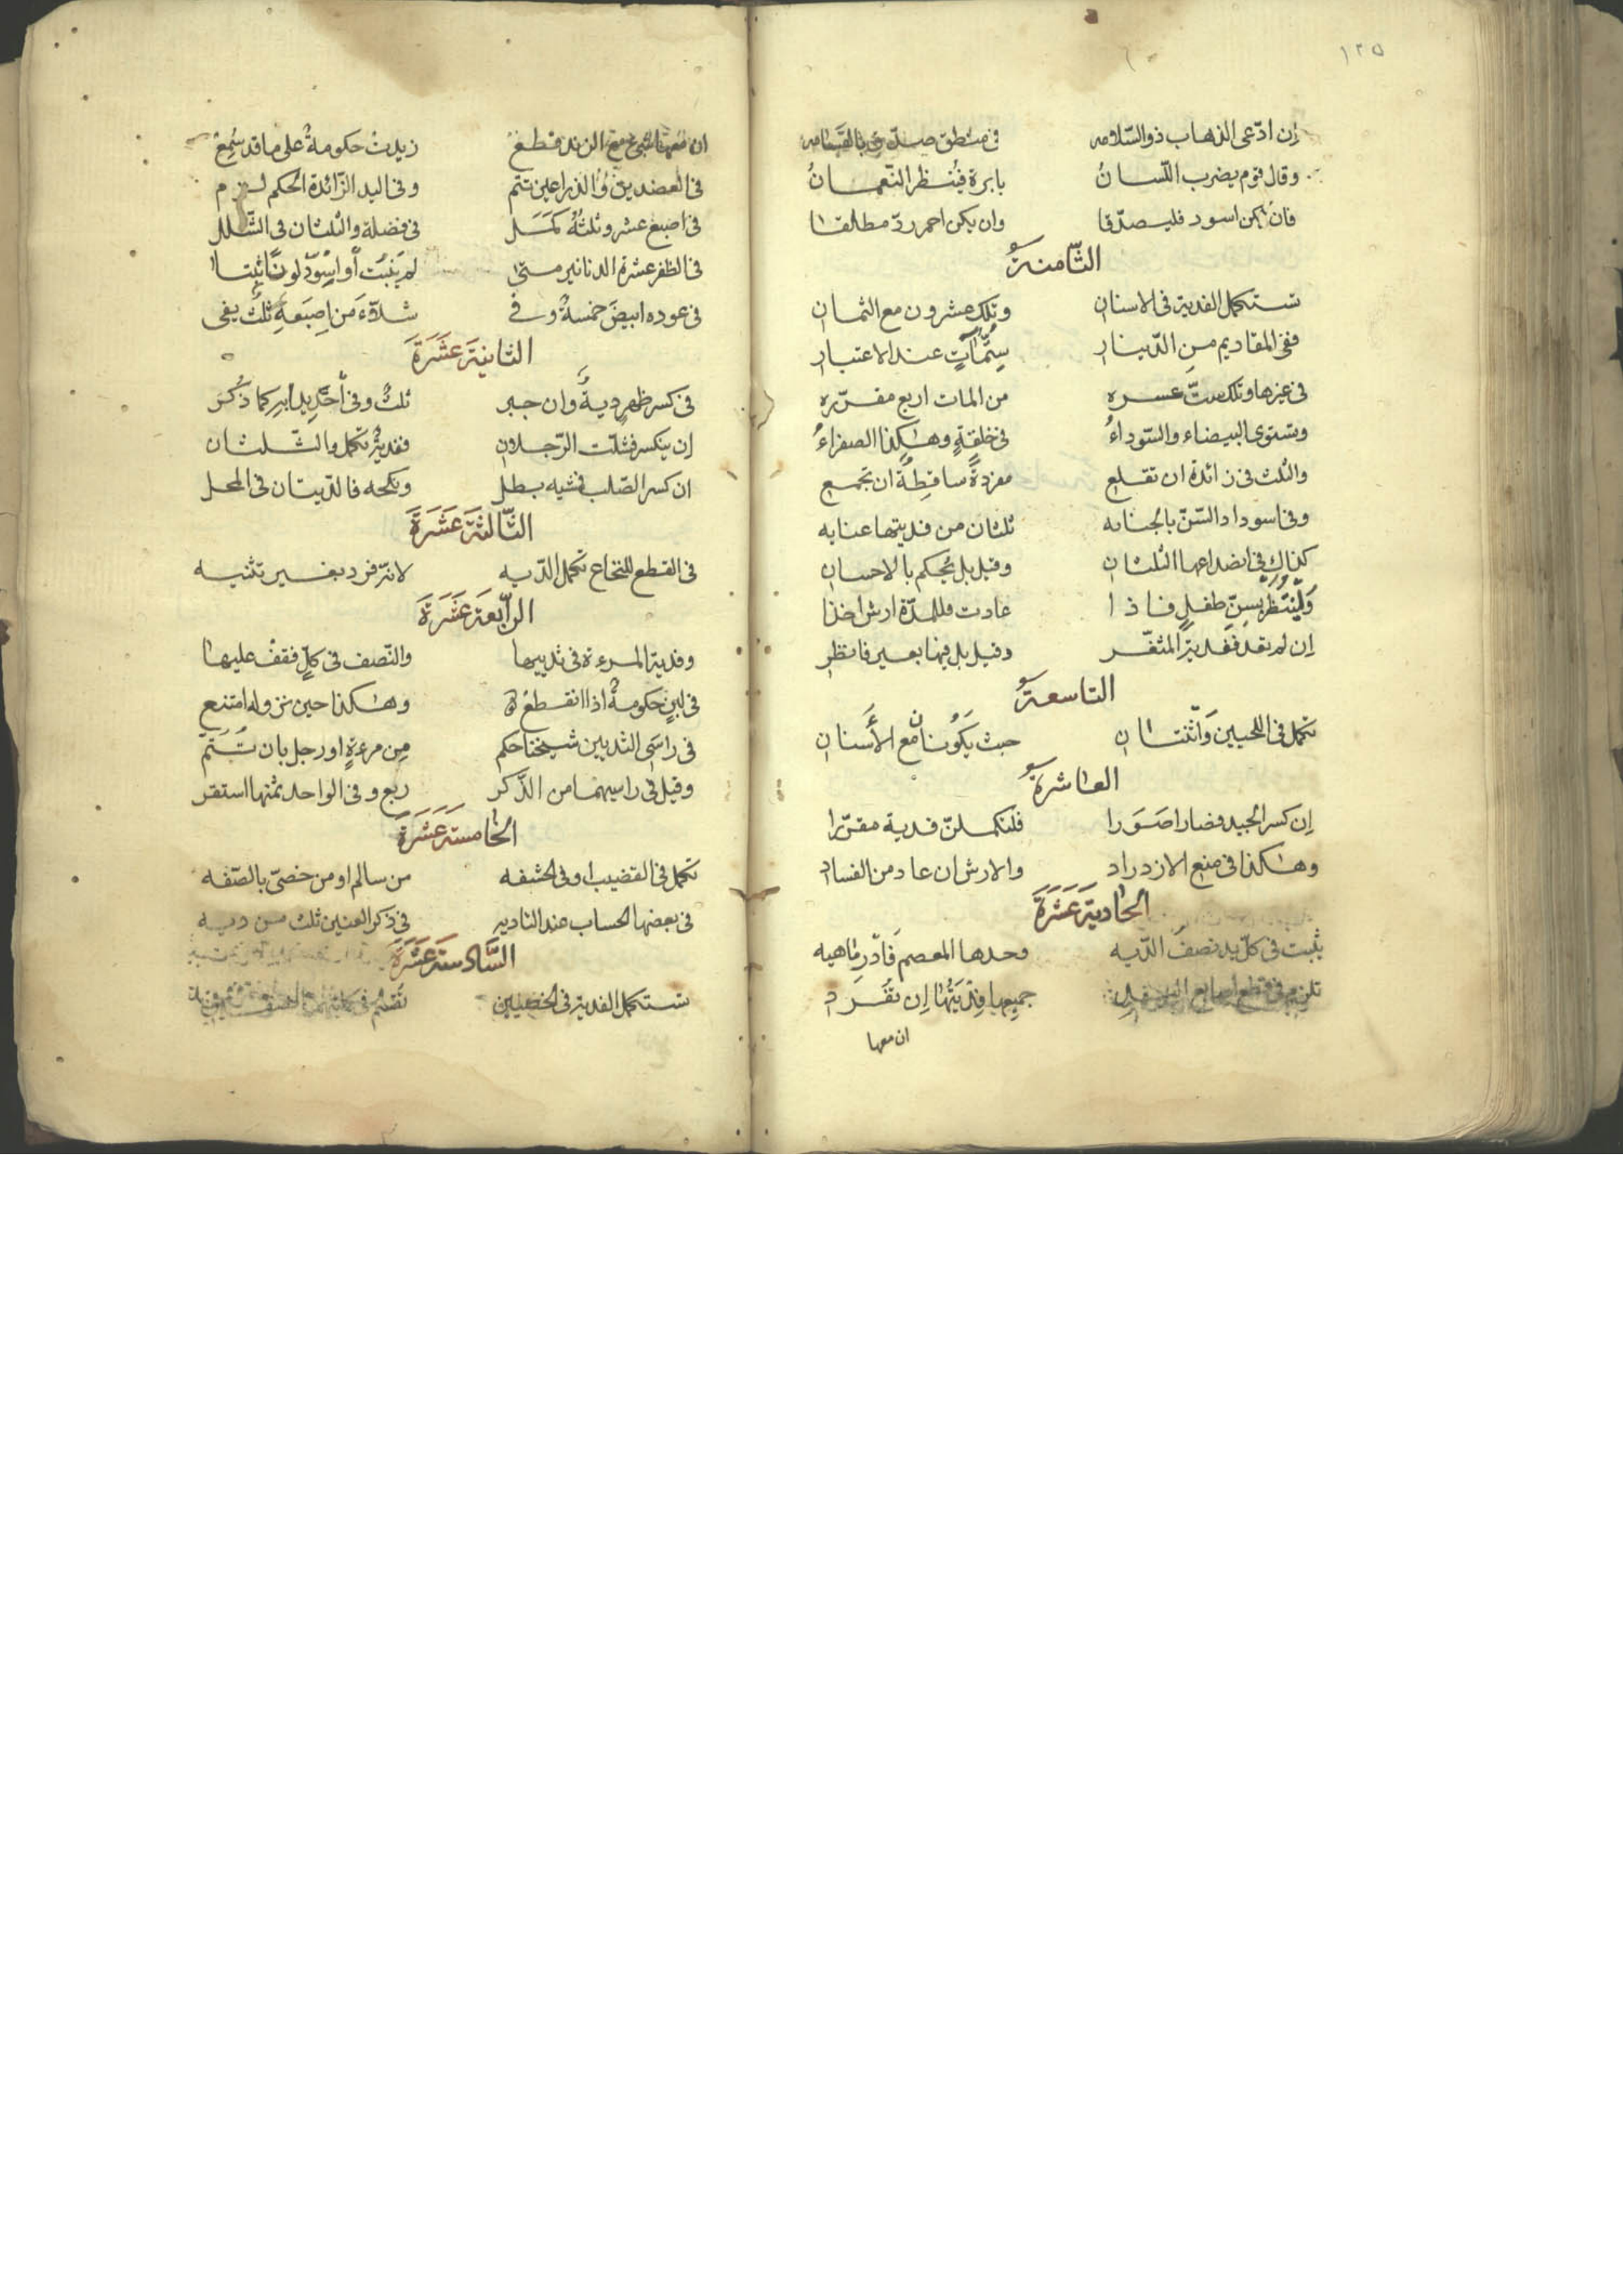 ١٢٥
إن ادّعى الذهاب ذو السّلامه في منطق صدّق بالقسامه
وقال قوم يضرب اللّسانُ بابرة فيُنظر النّعمانُ
فان يكن اسود فليصدّقا وان يكن احمر ردّ مطلقا
الثّامنةُ
تستكمل الفدية في الاسنان وتلك عشرون مع الثمان
ففي المقاديم من الدّينار ستّمآتٍ عند الاعتبار
في غيرها وتلك ستّ عشره من المات اربع مقرّره
وتستوى البيضاء والسّوداءُ في خلقةٍ وهكذا الصفراءُ
والثلث في زائدة ان تقلع مفردةً ساقطةً ان تجمع
وفي اسوداد السّنّ بالجنايه ثلثان من فديتها عنايه
كذاك في انصداعها الثلثان وقيل بل يُحكم بالاحسان
وليُنتظر بسنّ طفلٍ فاذا عادت فللمدّة ارش اخذا
إن لم تعد ففدية المثّغر وقيل بل فيها بعير فانظر
التاسعةُ
تكمل في اللحيين واثنتان حيث يكونان مع الأسنان
العاشرةُ
إن كسر الجيد فصار اصورا فلتكملنّ فدية مقرّرا
وهكذا في منع الازدراد والارش ان عاد من الفساد
الحادية عَشَرَةَ
يثبت في كلّ يد نصف الدّيه وحدها المعصم فادر ماهيه
تلزم في قطع اصابع اليد جميعها فديتها إن تفرد
ان معها
ان معها الزند قطع زيدت حكومةٌ على ما قد سُمِعْ
في العضدين والذراعين تتم وفي اليد الزّائدة الحكم لزم
في اصبع عشر وثلثه كمل في فضلة والثلثان في الشّلل
في الظفر عشرة الدنانير متى لم ينبت أو اسودّ لونًا ثبتا
في عوده ابيضَ خمسةٌ وفي شلّاء من اصبعه ثلث يفى
الثانية عَشَرَةَ
في كسر ظهرٍ ديةٌ وان جبر ثلثٌ وفي كما ذكر
إن ينكسر فشلّت الرّجلان ففديةٌ تكمل والثّلثان
ان كسر الصّلب فمشيه بطل ونكحه فالدّيتان في المحل
الثّالثة عَشَرَةَ
في القطع للنخاع تكمل الدّيه لانّه فرد بغير تثنيه
الرّابعة عَشَرَةَ
وفدية المرءة في ثدييها والنّصف في كلٍّ فقف عليها
في لبنٍ حكومةٌ اذا انقطع وهكذا حين نزوله امتنع
في راسَي الثديين شيخنا حكم مِن مرءةٍ او رجل بان تتمّ
وقيل في راسيهما من الذّكر ربع وفي الواحد ثمنها استقر
الخامسة عَشَرَةَ
تكمل في القضيب او في الحشفه من سالم او من خصىّ بالصّفه
في بعضها الحساب عند التاديه في ذكر العنين ثلث من ديه
السّادسة عَشَرَةَ
تستكمل الفدية في الخصيين